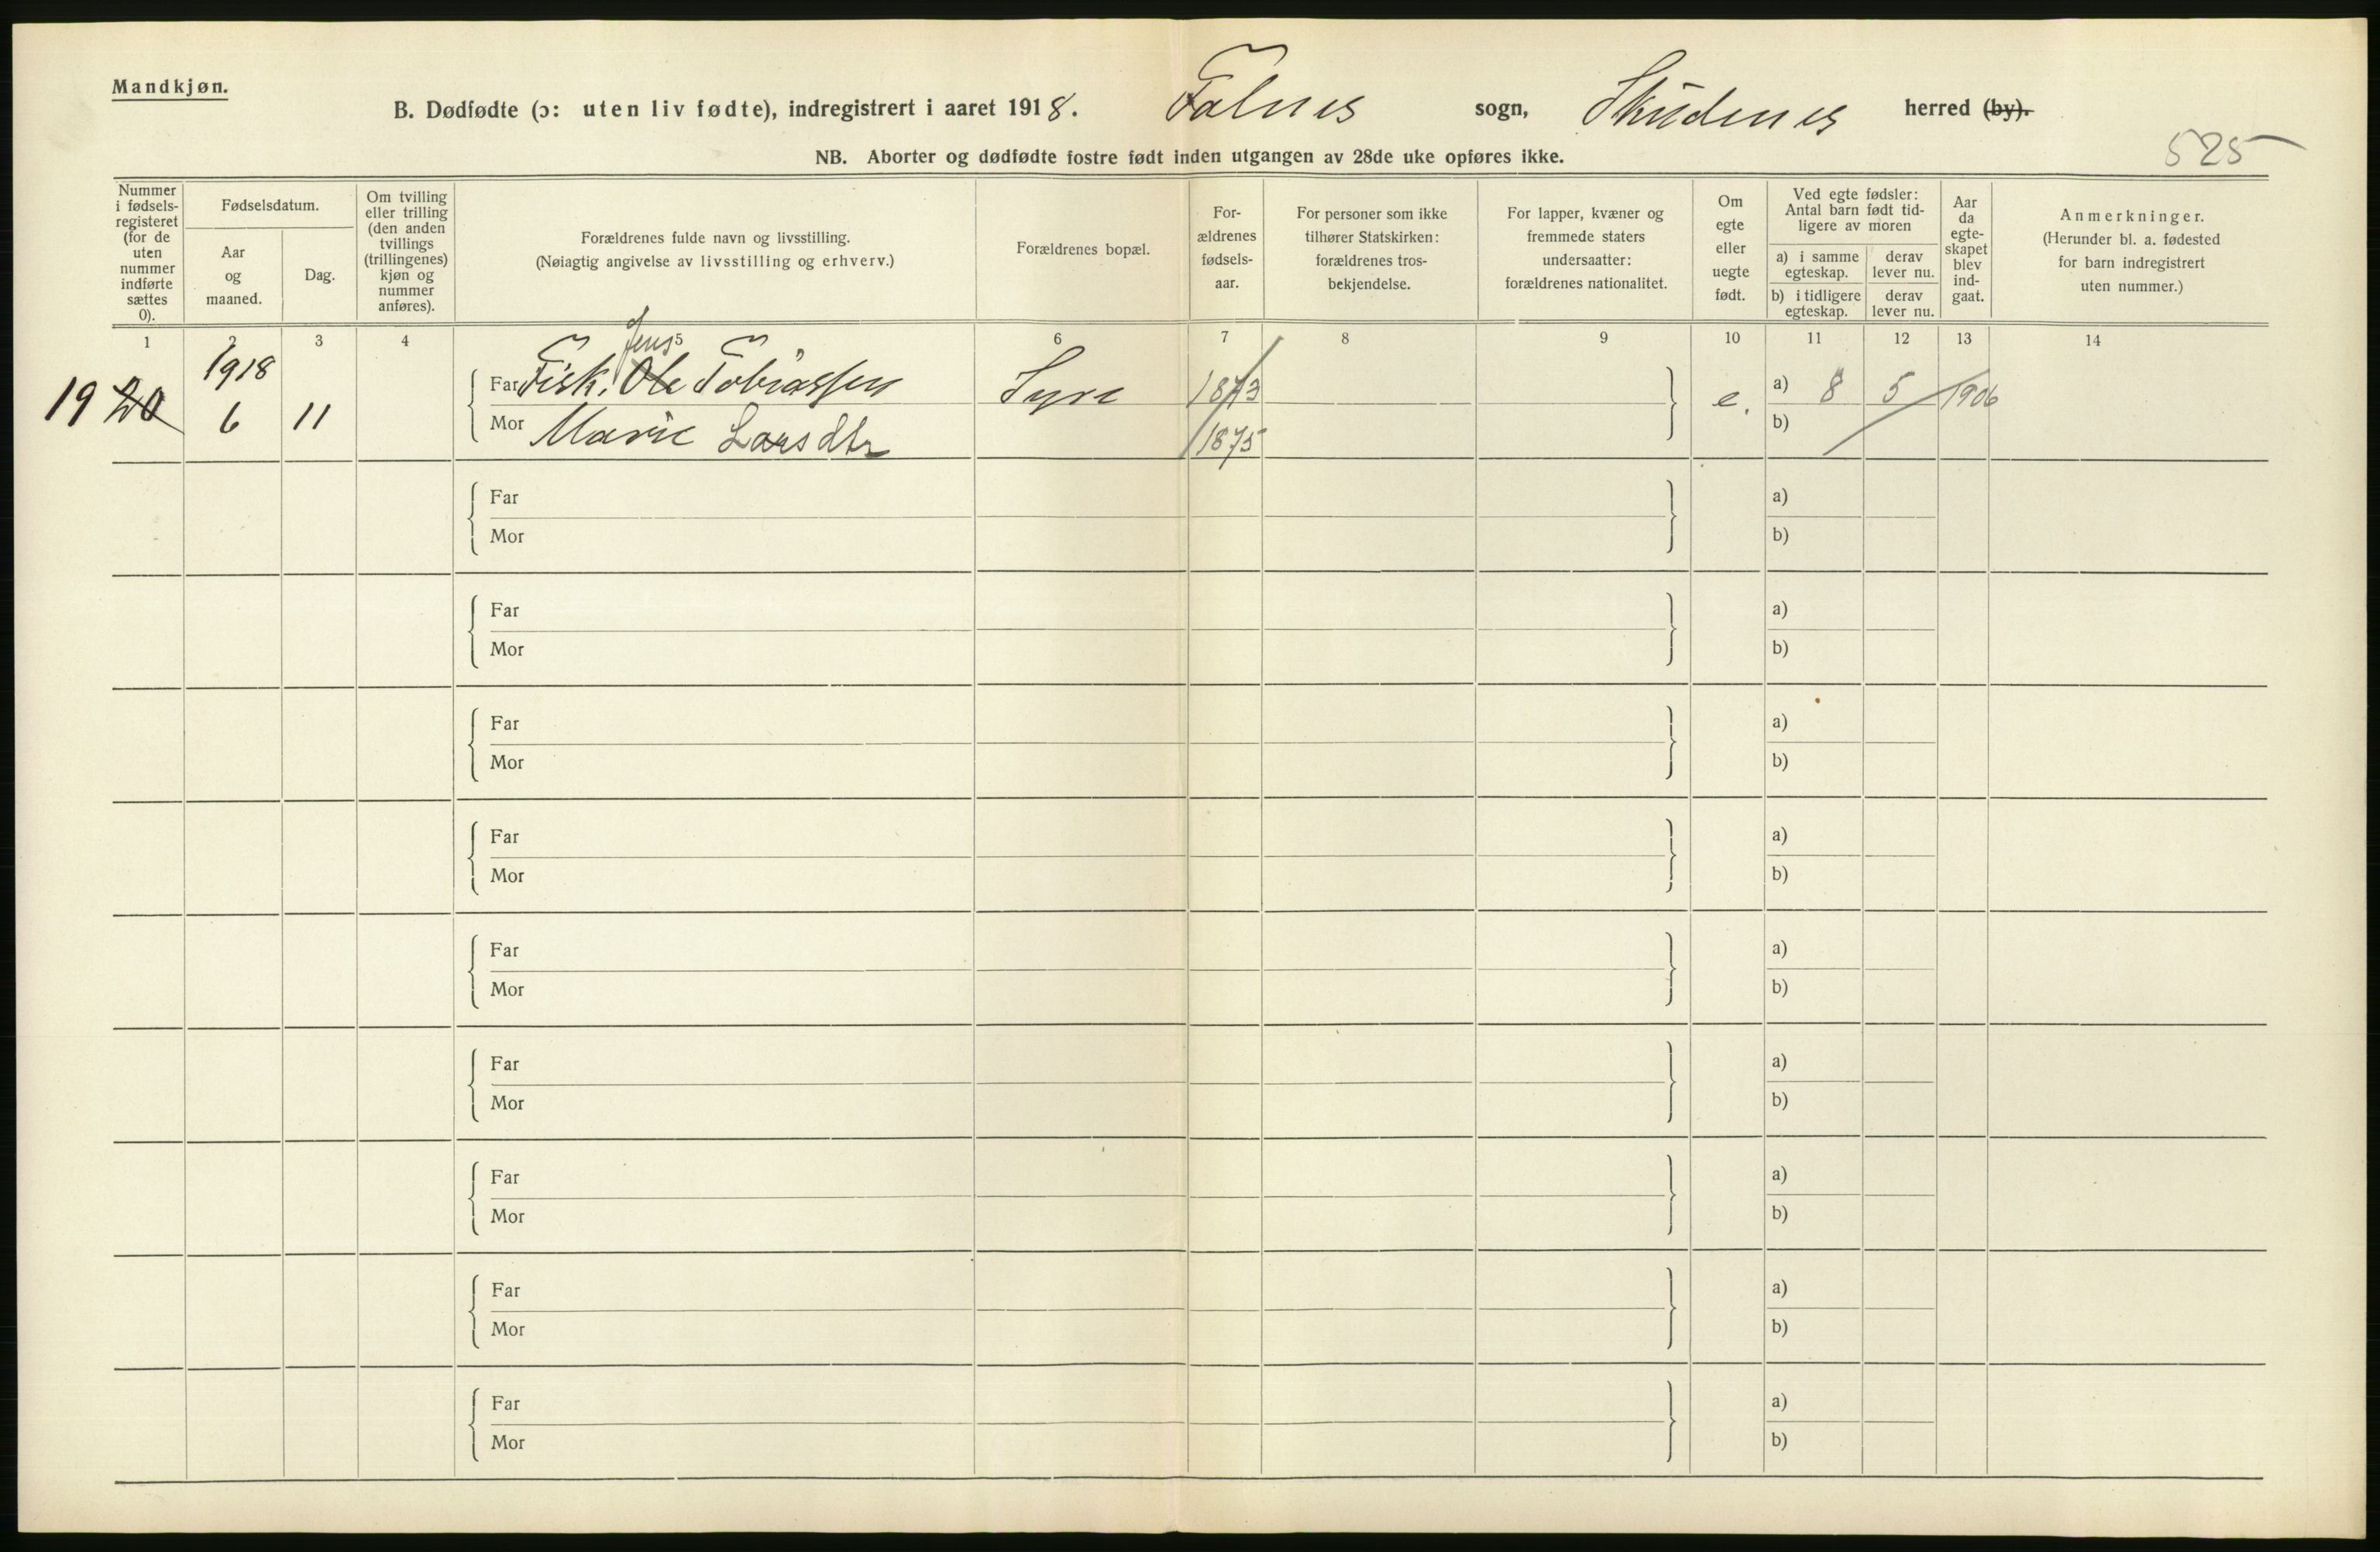 Mandkjøn.
B. Dødfødte (ɔ: uten liv fødte), indregistrert i aaret 1918. Falnes sogn, Skudenes herred (by).
NB. Aborter og dødfødte fostre født inden utgangen av 28de uke opføres ikke.
525
Nummer i fødsels-registeret (for de uten nummer indførte sættes 0).
Fødselsdatum.
Aar og maaned.
Dag.
Om tvilling eller trilling (den anden tvillings (trillingenes) kjøn og nummer anføres).
Forældrenes fulde navn og livsstilling.
(Nøiagtig angivelse av livsstilling og erhverv.)
Forældrenes bopæl.
For-ældrenes fødsels-aar.
For personer som ikke tilhører Statskirken: forældrenes tros-bekjendelse.
For lapper, kvæner og fremmede staters undersaatter: forældrenes nationalitet.
Om egte eller uegte født.
Ved egte fødsler: Antal barn født tid-ligere av moren
a) i samme egteskap.
derav lever nu.
b) i tidligere egteskap.
derav lever nu.
Aar da egte-skapet blev ind-gaat.
Anmerkninger.
(Herunder bl. a. fødested for barn indregistrert uten nummer.)
1 2 3 4 5 6 7 8 9 10 11 12 13 14
Jens
1918
19 20 6 11
Far Fisk. Ole Tobiassen Syre 1873 e. a) 8 5 1906
Mor Marie Larsdtr 1875 b)
Far a)
Mor b)
Far a)
Mor b)
Far a)
Mor b)
Far a)
Mor b)
Far a)
Mor b)
Far a)
Mor b)
Far a)
Mor b)
Far a)
Mor b)
Far a)
Mor b)